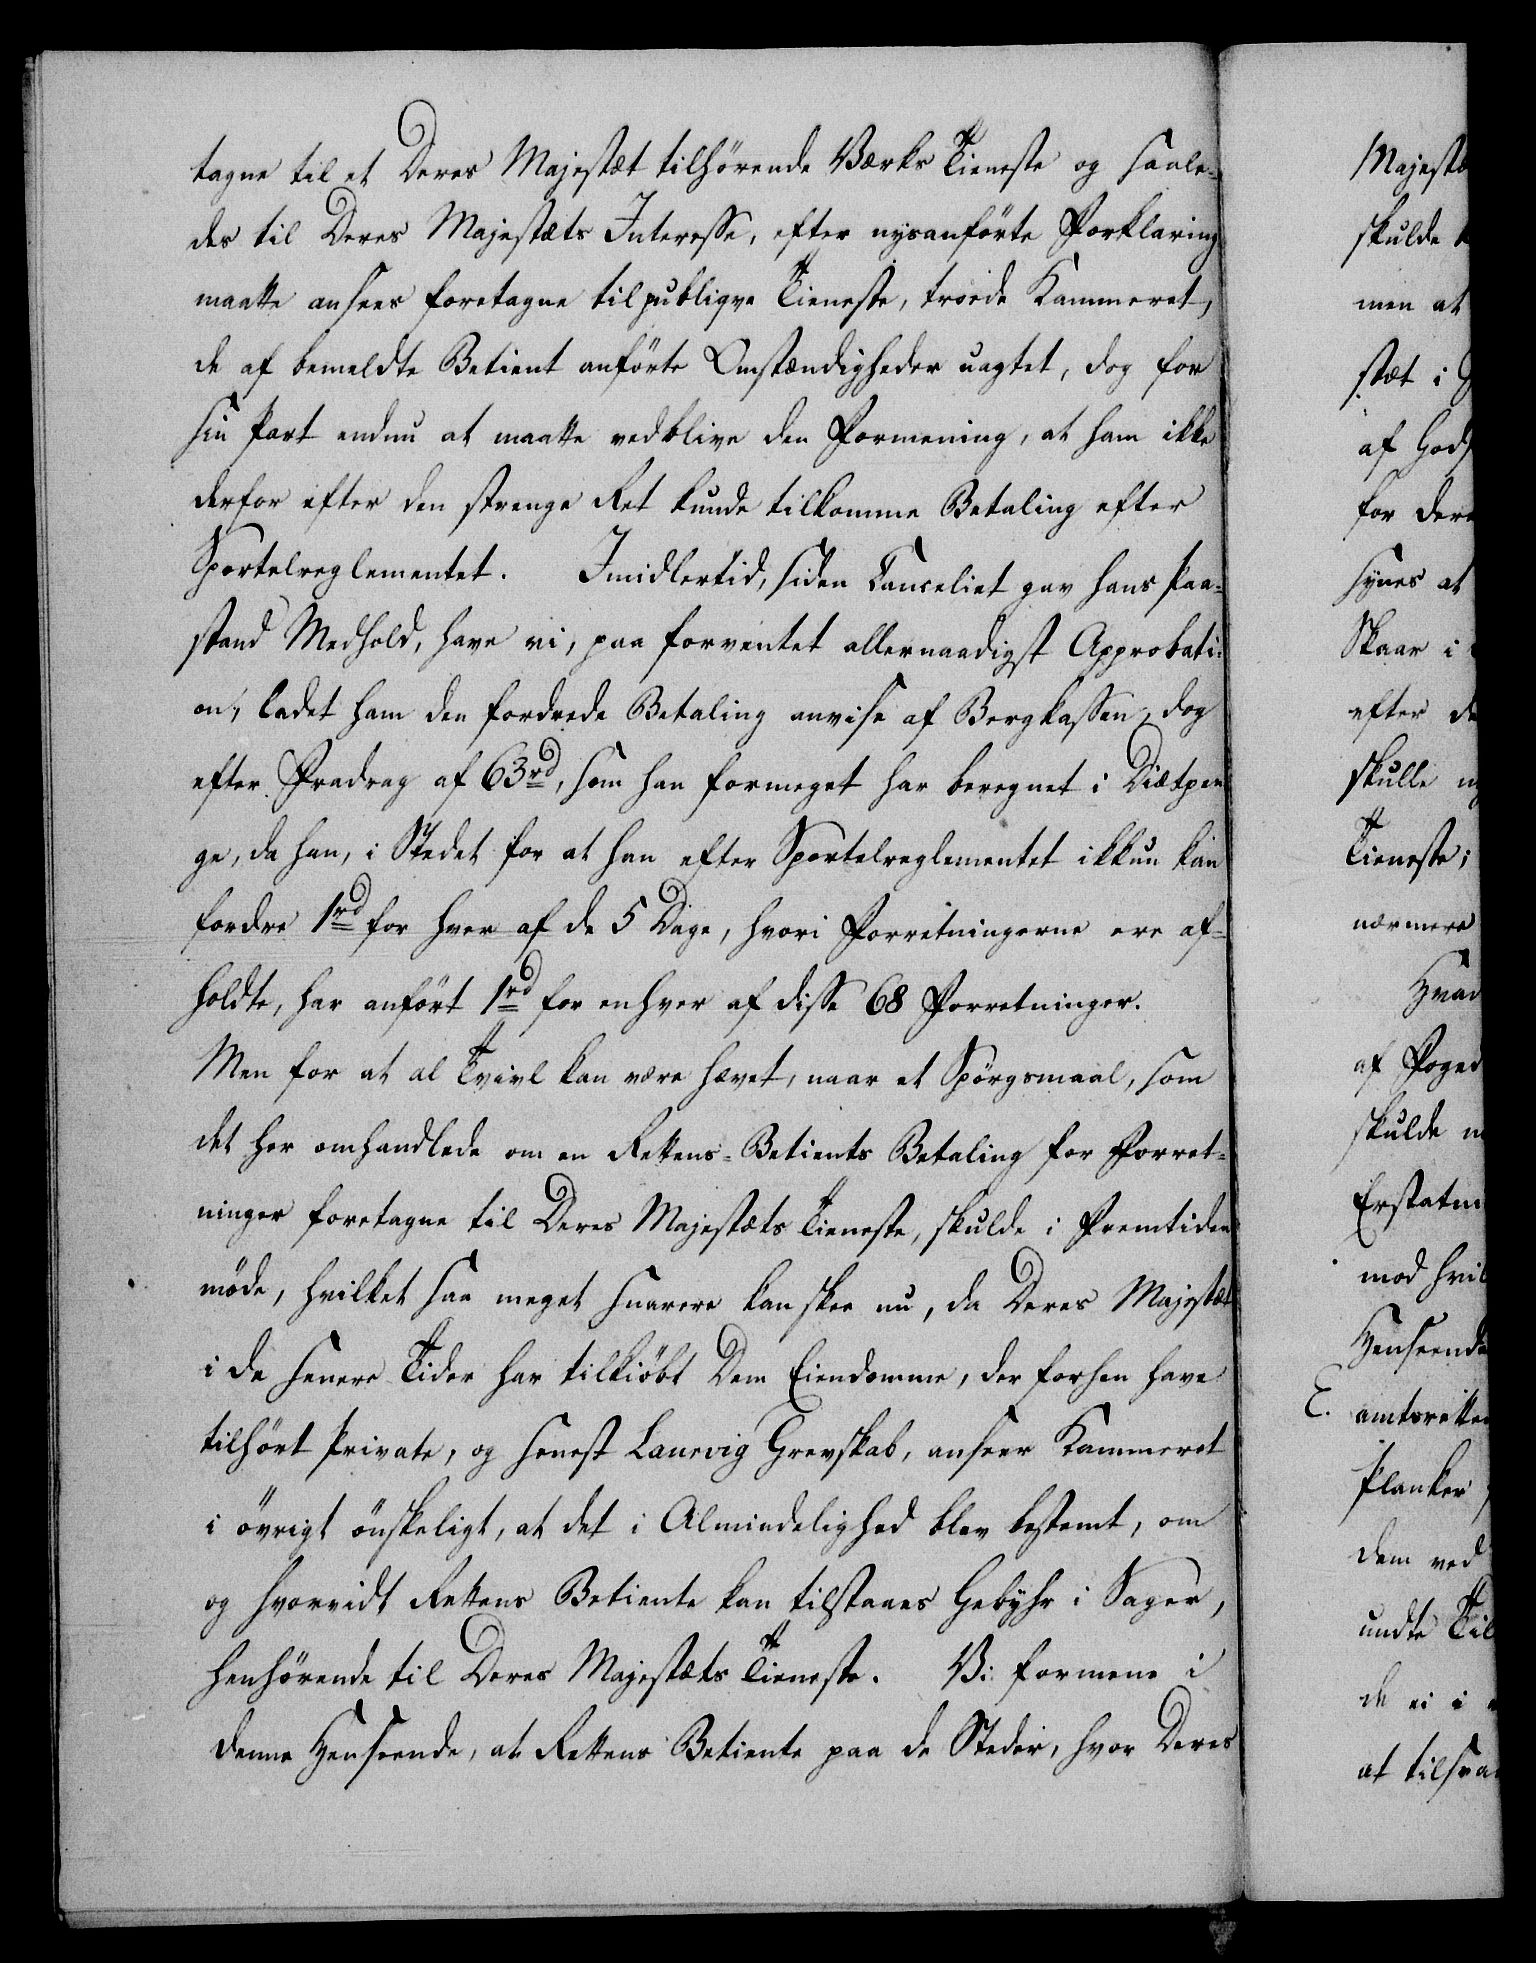 tagne til et Deres Majestæt tilhörende Værks Tieneste og saale-
des til Deres Majestæts Interesse, efter nysanförte Forklaring
maatte ansees foretagne til publiqve Tieneste, troede Kammeret,
de af bemeldte Betient anförte Omstændigheder uagtet, dog for
sin Part endnu at maatte vedblive den Formening, at ham ikke
derfor efter den strenge Ret kunde tilkomme Betaling efter
Sportelreglementet. Imidlertid, siden Canceliet gav hans Paa-
stand Medhold, have vi, paa forventet allernaadigst Approbati-
on, ladet ham den fordrede Betaling anvise af Bergkassen, dog
efter Fradrag af 63rd, som han formeget har beregnet i Diætpen
ge, da han, i Stedet for at han efter Sportelreglementet ikkun kan
fordre 1rd for hver af de 5 Dage, hvori Forretningerne ere af-
holdte, har anfört 1rd for enhver af disse 68 Forretninger.
Men for at al Tvivl kan være hævet, naar et Spörgsmaal, som
det her omhandlede om en Rettens-Betients Betaling for Forret-
ninger foretagne til Deres Majestæts Tieneste, skulde i Fremtiden
möde, hvilket saa meget snarere kan skee nu, da Deres Majestæt
i de senere Tider har tilkiöbt Dem Eiendomme, der forhen have
tilhört Private, og senest Laurvig Grevskab, anseer Kammeret
i övrigt önskeligt, at det i Almindelighed blev bestemt, om
og hvorvidt Rettens Betiente kan tilstaaes Gebyhr i Sager,
henhörende til Deres Majestæts Tieneste. Vi formene i
denne Henseende, at Rettens Betiente paa de Steder, hvor Deres
Majestæ
skulde
men at
stæt i
af Gods
for der
synes at
Skaar i
efter de
skulle
Tieneste;
nærmere
Hvad
af Foged
skulde
Erstatni
mod hvil
Henseende
E. amtsretten
Planker
dem ved
undte Til
de ei i
at tilsva